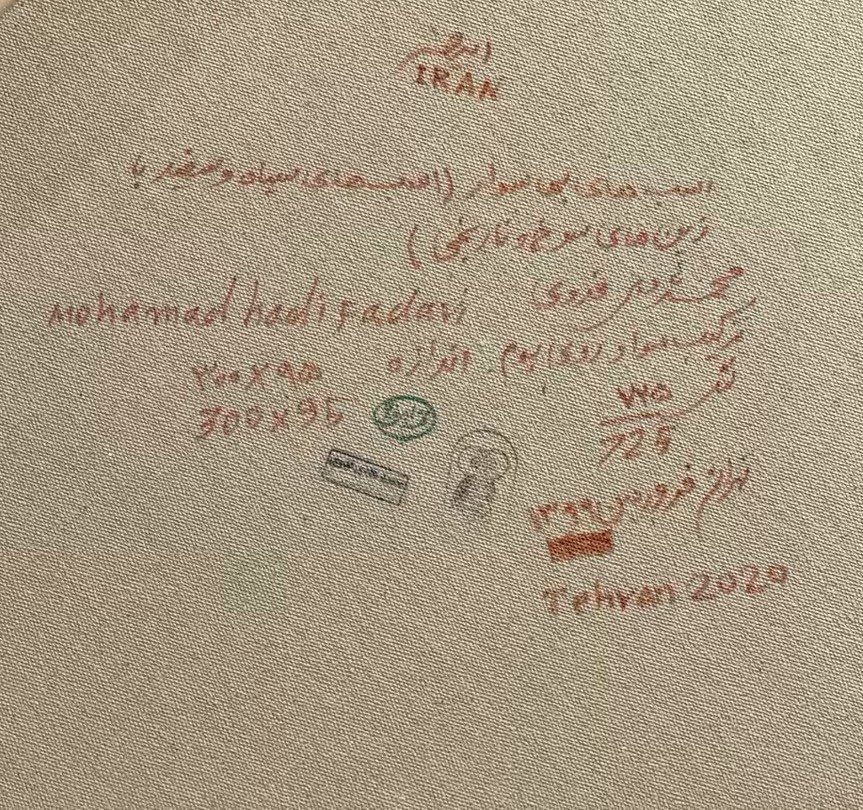 ایران
IRAN
اسب های بی سوار (اسب های سیاه و سفید با
زین های سرخ و نارنجی)
محمد هادی فدوی
Mohammad hadi Fadavi
ترکیب مواد روی بوم اندازه
۳۰۰×۹۵
300×95
۷۲۵
725
تهران فروردین ۱۳۹۹
Tehran 2020